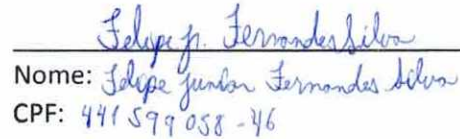 Felipe jr. Fernandes Silva
Nome: Felipe Junior Fernandes Silva
CPF: 441 599 058-46